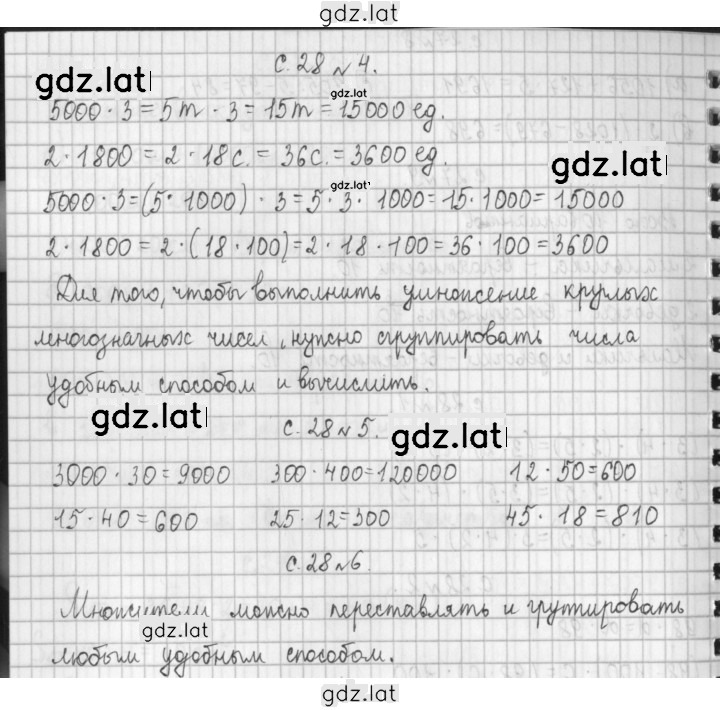 gdz.lat
с. 28 № 4.
gdz.lat
gdz.lat
5000 · 3 = 5т · 3 = 15т = 15000 ед.
2 · 1800 = 2 · 18с. = 36с. = 3600 ед.
gdz.lat
gdz.lat
5000 · 3 = (5 · 1000) · 3 = 5 · 3 · 1000 = 15 · 1000 = 15000
2 · 1800 = 2 · (18 · 100) = 2 · 18 · 100 = 36 · 100 = 3600
Для того, чтобы выполнить умножение круглых
многозначных чисел, нужно сгруппировать числа
удобным способом и вычислить.
gdz.lat
с. 28 № 5.
gdz.lat
3000 · 30 = 9000 300 · 400 = 120000 12 · 50 = 600
15 · 40 = 600 25 · 12 = 300 45 · 18 = 810
с. 28 № 6.
Множители можно переставлять и групировать
gdz.lat
любым удобным способом.
gdz.lat